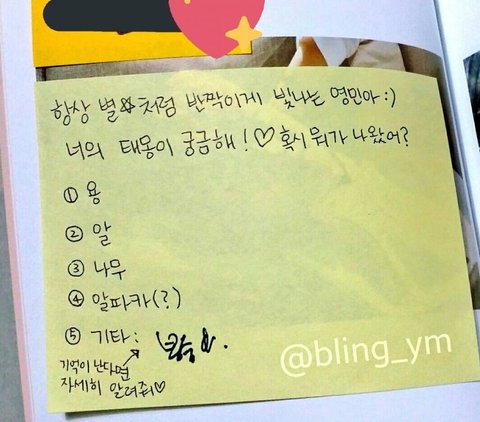 항상 별☆처럼 반짝이게 빛나는 영민아 :)
너의 태몽이 궁금해! ♡ 혹시 뭐가 나왔어?
① 용
② 알
③ 나무
④ 알파카(?)
⑤ 기타 :
기억이 난다면
자세히 알려줘♡
@bling_ym